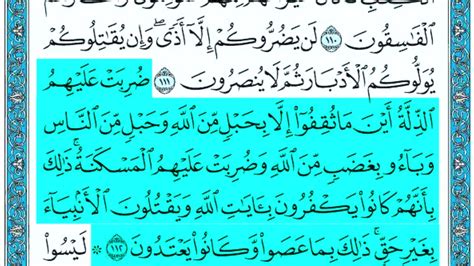 ٱلْفَٰسِقُونَ ١١٠ لَن يَضُرُّوكُمْ إِلَّآ أَذًى وَإِن يُقَٰتِلُوكُمْ
يُوَلُّوكُمُ ٱلْأَدْبَارَ ثُمَّ لَا يُنصَرُونَ ١١١ ضُرِبَتْ عَلَيْهِمُ
ٱلذِّلَّةُ أَيْنَ مَا ثُقِفُوٓا۟ إِلَّا بِحَبْلٍ مِّنَ ٱللَّهِ وَحَبْلٍ مِّنَ ٱلنَّاسِ
وَبَآءُو بِغَضَبٍ مِّنَ ٱللَّهِ وَضُرِبَتْ عَلَيْهِمُ ٱلْمَسْكَنَةُ ۚ ذَٰلِكَ
بِأَنَّهُمْ كَانُوا۟ يَكْفُرُونَ بِـَٔايَٰتِ ٱللَّهِ وَيَقْتُلُونَ ٱلْأَنۢبِيَآءَ
بِغَيْرِ حَقٍّ ۚ ذَٰلِكَ بِمَا عَصَوا۟ وَّكَانُوا۟ يَعْتَدُونَ ١١٢ ۞ لَيْسُوا۟